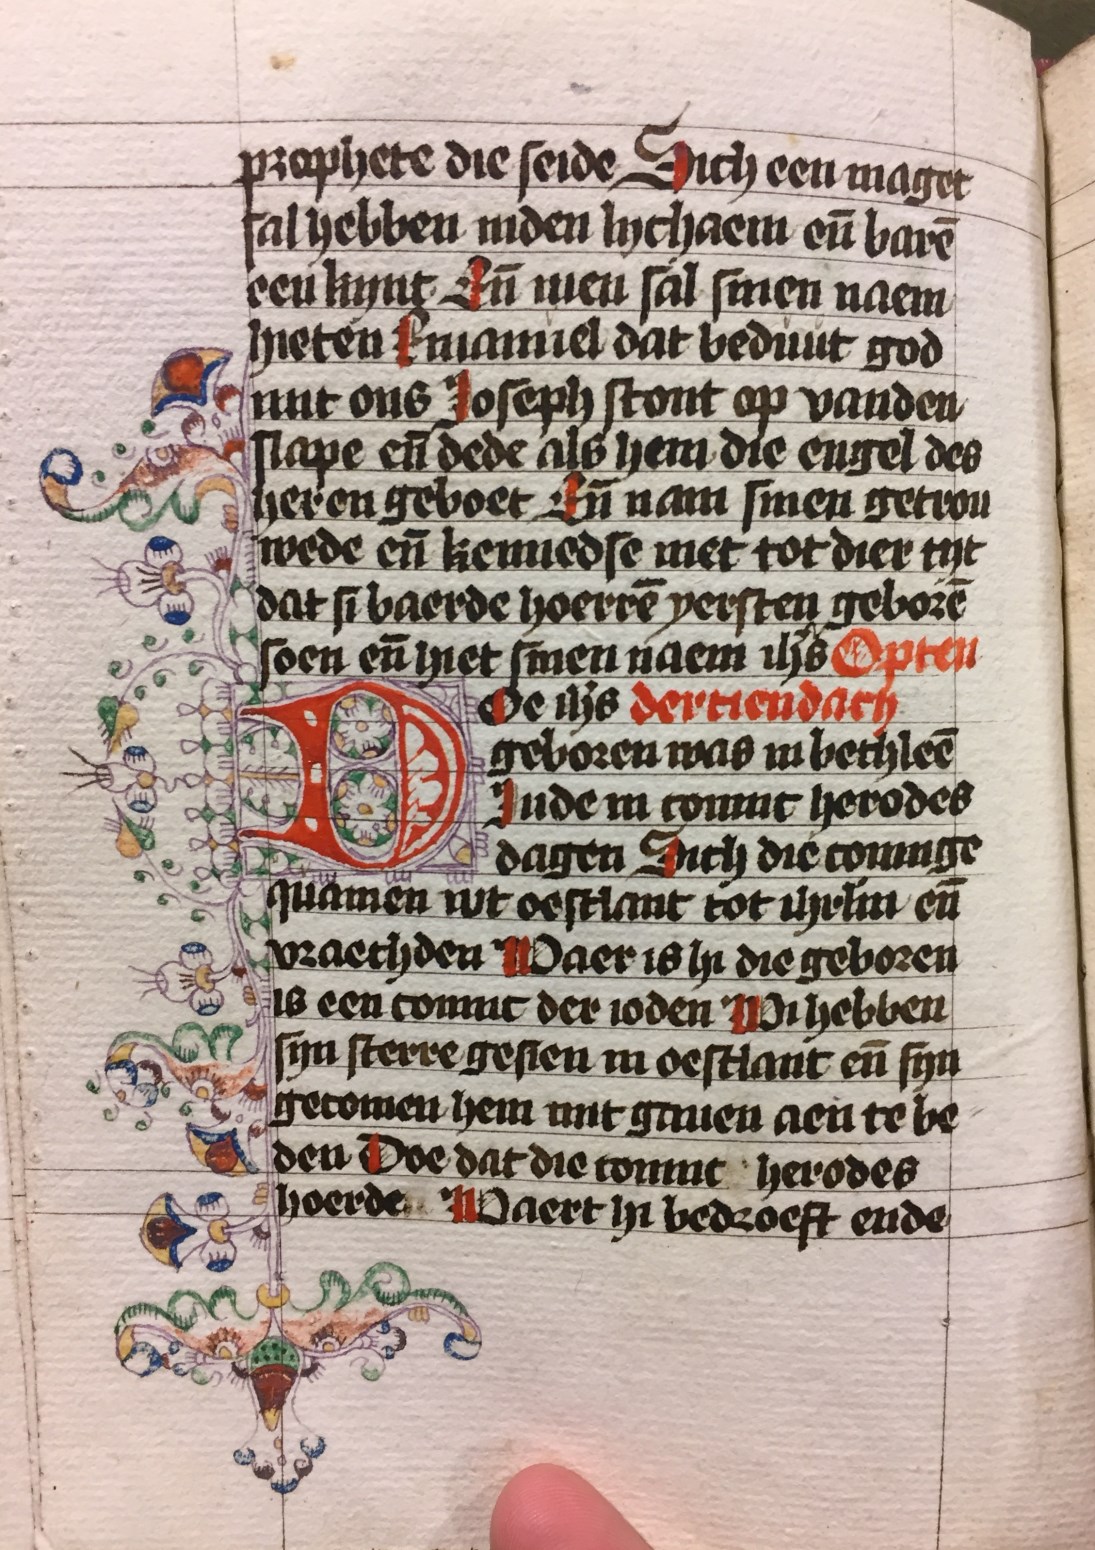 prophete die seide Sich een maget
sal hebben inden lychaem eñ barē
een kynt Eñ men sal sinen naem
hieten Emanuel dat beduut god
mit ons Joseph stont op vanden
slape eñ dede als hem die engel des
heren geboet Eñ nam sinen getrou
wede eñ kennedse niet tot dier tijt
dat si baerde hoerrē yersten geborē
soen eñ hiet sinen naem ihs̄ Opten
Doe ihs̄ dertiendach
geboren was in bethleē
Jude in coninc herodes
dagen Sich die coninge
quamen wt oestlant tot ihrlm eñ
vraechden Waer is hi die geboren
is een coninc der ioden Wi hebben
sijn sterre gesien in oestlant eñ sijn
gecomen hem mit gauen aen te be
den Doe dat die coninc herodes
hoerde Waert hi bedroeft ende